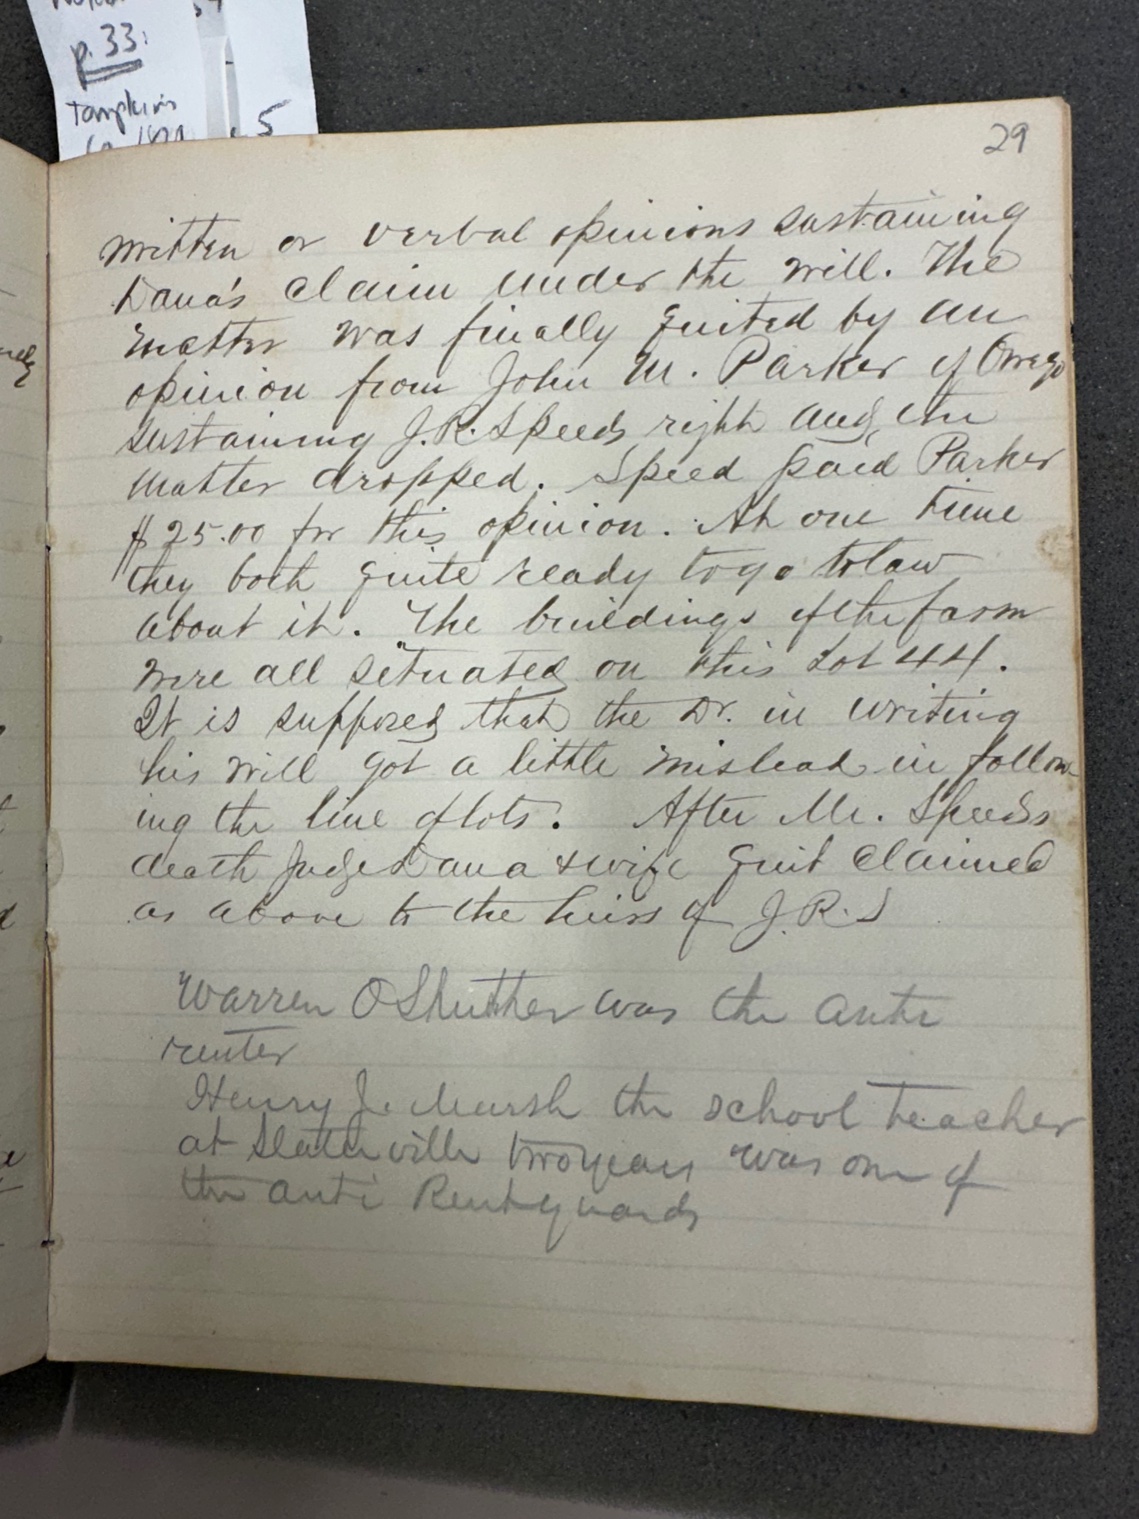 p. 33.
Tompkins
5
29
written or verbal opinions sustaining
Dana's claim under the will. The
matter was finally quited by an
opinion from John M. Parker of Owego
sustaining J.R. Speeds right and the
matter dropped. Speed paid Parker
$25.00 for this opinion. At one time
they both quite ready to go to law
about it. The buildings of the farm
were all situated on this Lot 44.
It is supposed that the Dr. in writing
his will got a little mislead in follow
ing the line of lots. After Mr. Speeds
death Judge Dana & wife quit claimed
as above to the heirs of J.R.S
Warren O Shuther was the anti
renter
Henry J. Marsh the school teacher
at Slaterville two years was one of
the anti Rent guards